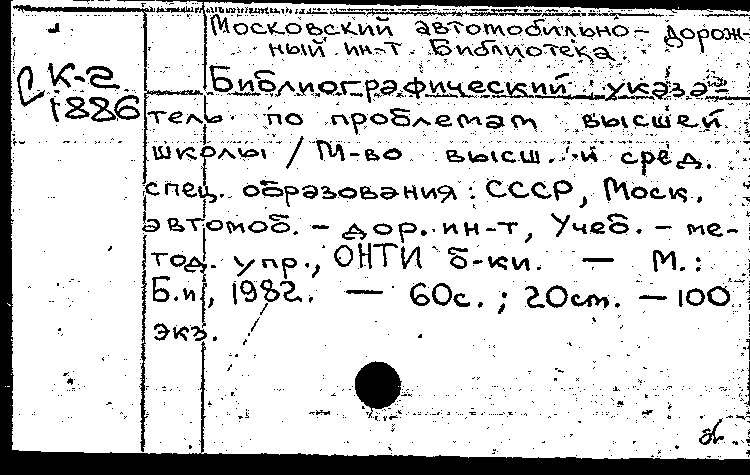 Московский автомобильно- дорож-
ный ин-т. Библиотека.
К-2
1886
Библиографический указа=
тель по проблемам высшей
школы / М-во высш. и сред.
спец. образования СССР, Моск.
автомоб. - дор. ин-т, Учеб. - ме-
тод. упр., ОНТИ б-ки. — М.:
Б.и., 1982. — 60с.; 20см. — 100
экз.